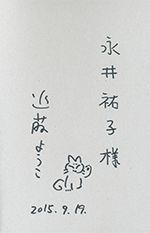 永井祐子様
近藤ようこ
2015.9.19.